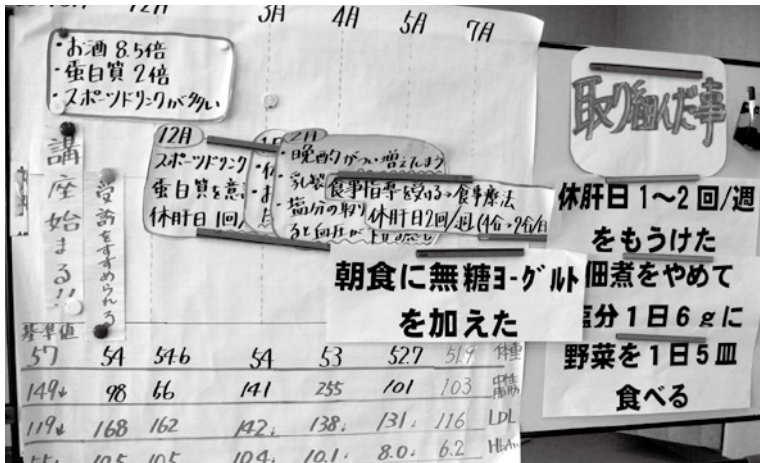 12月 3月 4月 5月 7月
・お酒 8.5倍
・蛋白質 2倍
・スポーツドリンクが多い
講座始まる!!
受診をすすめられる
12月
スポーツドリンク
蛋白質を意
休肝日 1回/
2月
・晩酌がつい増えてしまう
・乳製
・塩分の取り
ると血圧が
食事指導を受ける→食事療法
休肝日2回/週
朝食に無糖ヨーグルト
を加えた
取り組んだ事
休肝日1～2回/週
をもうけた
佃煮をやめて
塩分1日6gに
野菜を1日5皿
食べる
基準値
57 54 54.6 54 53 52.7 51.9 体重
149↓ 98 66 141 255 101 103 中性脂肪
119↓ 168 162 142↓ 138↓ 131↓ 116 LDL
10.5 10.5 10.4↓ 10.1↓ 8.0↓ 6.2 HbA1c